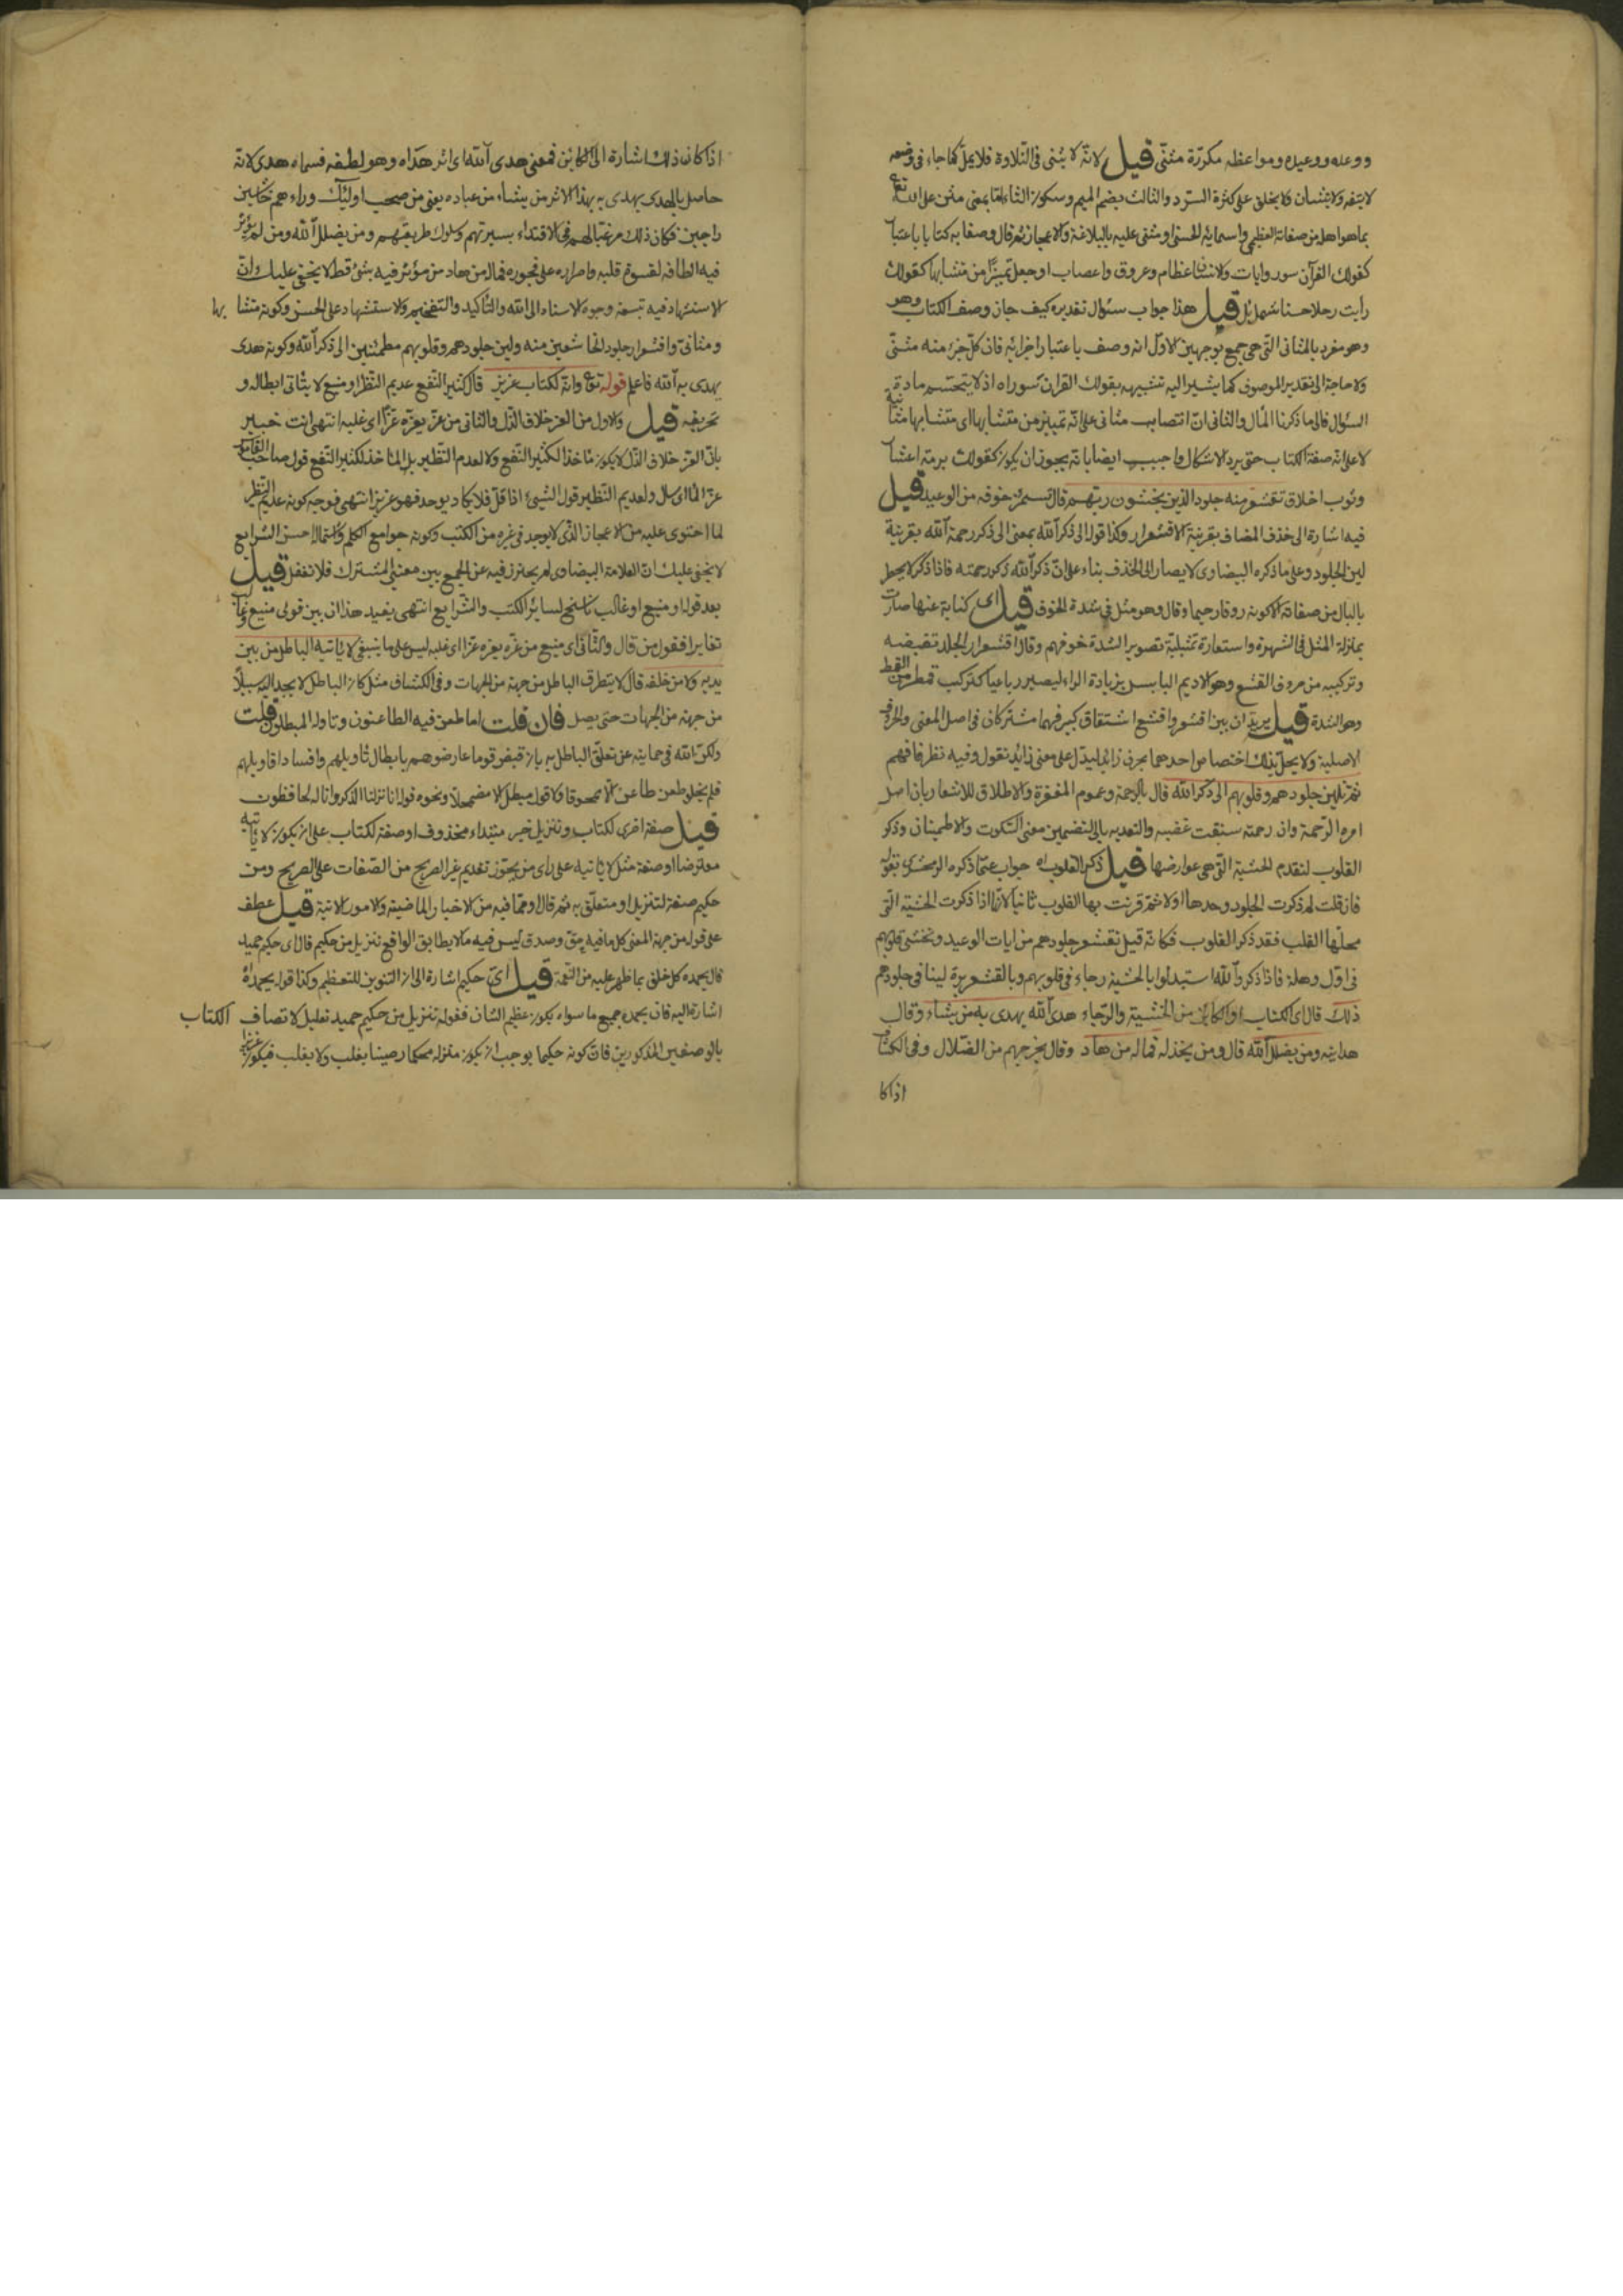 ووعده ووعيده ومواعظه مكررة مثنى قيل لانه لا يثنى فى التلاوة فلا يملّ كما جاء فى وصفه
لا يتفه ولا يتشان ولا يخلق على كثرة الترد والثالث بضم الميم وسكون الثاء اما بمعنى مثن على الله تع
بما هو اهل من صفاته العظمى واسمائه الحسنى او مثنى عليه بالبلاغة والاعجاز ثم قال وصفا به كتابا باعتبا
كقولك القرآن سور وايات والانسان عظام وعروق واعصاب او جعل تمييزا من متشابها كقولك
رأيت رجلا حسنا شمايل قيل هذا جواب سئوال تقديره كيف جاز وصف الكتاب وهو
وهو مفرد بالمثانى التى هى جمع بوجهين الاول انه وصف باعتبار اجزائه فان كل جزء منه مثنى
ولا حاجة الى تقدير الموصوف كما يشير اليه تشبيهه بقولك القران سور اه اذ لا يتحسم مادة
السئوال فالى ما ذكرنا المآل والثانى ان انتصاب مثانى على انه تمييز من متشابها اى متشابها مثا نيه
لا على انه صفة الكتاب حتى يرد الاشكال واجيب ايضا بانه يجوز ان يكون كقولك برمة اعشا
وثوب اخلاق تقشعر منه جلود الذين يخشون ربهم قال تشمئز خوفه من الوعيد قيل
فيه اشارة الى حذف المضاف بقرينة الاقشعرار وكذا قوله الى ذكر الله بمعنى الى ذكر رحمة الله بقرينة
لين الجلود وعلى ما ذكره البيضاوى لا يصار الى الحذف بناء على ان ذكر الله ذكر رحمته فاذا ذكر لا يخطر
بالبال من صفاته الا كونه روفا رحيما وقال وهو مثل فى شدة الخوف قيل اى كناية عنها صارت
بمنزلة المثل فى الشهرة واستعارة تمثيلية تصويرا لشدة خوفهم وقال اقشعرار الجلد تقبضه
وتركيبه من حروف القشع وهو الاديم اليابس بزيادة الراء ليصير رباعيا كتركيب قمطر من القمط
وهو الشدة قيل يريد ان بين اقشعر واقشع اشتقاق كبير فهما مشتركان فى اصل المعنى والحروف
الاصلية ولا يحل بذلك اختصاص احدهما بحرف زايد ليدل على معنى زايد نقول وفيه نظر فافهم
ثم تلين جلودهم وقلوبهم الى ذكر الله قال بالرحمة وعموم المغفرة والاطلاق للاشعار بان اصل
امره الرحمة وان رحمته سبقت غضبه والتعديه بالى لتضمين معنى السكون والاطمينان وذكر
القلوب لتقدم الخشية التى هى عوارضها قيل ذكر القلوب اه جواب عما ذكره الزمخشرى بقوله
فان قلت لم ذكرت الجلود وحدها اولا ثم قرنت بها القلوب ثانيا لانها اذا ذكرت الخشية التى
محلها القلب فقد ذكر القلوب فكانه قيل تقشعر جلودهم من ايات الوعيد وتخشى قلوبهم
فى اول وهلة فاذا ذكروا الله استبدلوا بالخشية رجاء فى قلوبهم وبالقشعريرة لينا فى جلودهم
ذلك قال اى الكتاب او الكائن من الخشية والرجاء هدى الله يهدى به من يشاء وقال
هدايته ومن يضلل الله قال ومن يخذله فما له من هاد وقال يخرجهم من الضلال وفى الكشا
اذا كا
اذا كان ذلك اشارة الى الكائن فمعنى هدى الله اى اثر هداه وهو لطفه فسماه هدى لانه
حاصل بالهدى يهدى به بهذا الاثر من يشاء من عباده يعنى من صحب اولئك وراءهم خاشين
راجين فكان ذلك مرغبا لهم فى الاقتداء بسيرتهم وسلوك طريقهم ومن يضلل الله ومن لم يؤثر
فيه الطافه لقسوة قلبه واصراره على فجوره فماله من هاد من مؤثر فيه بشئ قط لا يخفى عليك ان
الاستشهاد فيه تسعة وجوه الاسناد الى الله والتأكيد والتفخيم والاستشهاد على الحسن وكونه متشا بها
ومثانى واقشعرار جلود الخاشعين منه ولين جلودهم وقلوبهم مطمئنين الى ذكر الله وكونه هدى
يهدى به الله فاعلم قوله تع وانه لكتاب عزيز قال كثير النفع عديم النظر او منيع لا يتأتى ابطاله و
تحريفه قيل والاول من العز خلاف الذل والثانى من عزه يعزه عزا اى غلبه انتهى انت خبير
بان العز خلاف الذل لا يكون مأخذا لكثير النفع ولا لعدم النظير بل المأخذ لكثير النفع قول صاحب القاموس
عز الماء سال ولعديم النظير قول الشيئ اذا قل فلا يكاد يوجد فهو عزيز انتهى فوجه كونه عديم النظر
لما احتوى عليه من الاعجاز الذى لا يوجد فى غيره من الكتب وكونه جوامع الكلم واشتماله احسن الشرايع
لا يخفى عليك ان العلامة البيضاوى لم يحترز فيه عن الجمع بين معنيى المشترك فلا تغفل قيل
بعد قوله او منيع او غالب ناسخ لساير الكتب والشرايع انتهى يفيد هذا ان بين قولى منيع وغا
تغايرا فقول من قال والثانى اى منيع من عزه يعزه عزا اى غلبه ليس على ما ينبغى لا يأتيه الباطل من بين
يديه ولا من خلفه قال لا يتطرق الباطل من جهة من الجهات وفى الكشاف مثل كان الباطل لا يجد اليه سبيلا
من جهة من الجهات حتى يصل فان قلت اما طعن فيه الطاعنون وتاوله المبطلون قلت
ولكن الله فى حمايته عن تعلق الباطل به بان قبض قوما عارضوهم بابطال تأويلهم وافساد اقاويلهم
فلم يخلو طعن طاعن الا ممحوقا ولا قول مبطل الا مضمحلا ونحوه قوله انا نزلنا الذكر وانا له لحافظون
قيل صفة اخرى لكتاب وتنزيل خبر مبتداء محذوف او صفة لكتاب على ان يكون لا يأ تيه
معترضا او صفة مثل لا يأتيه على راى من يجوز تقديم غير الصريح من الصفات على الصريح ومن
حكيم صفة لتنزيل او متعلق به ثم قال او مما فيه من الاخبار الماضية والامور الاتية قيل عطف
على قوله من جهة المعنى كل ما فيه حق وصدق ليس فيه ما لا يطابق الواقع تنزيل من حكيم قال اى حكيم حميد
قال يحمده كل خلق بما ظهر عليه من النعمة قيل اى حكيم اشارة الى ان التنوين للتعظيم وكذا قوله يحمده
اشارة اليه فان يحمده جميع ما سواه يكون عظيم الشان فقوله تنزيل من حكيم حميد تعليل لاتصاف الكتاب
بالوصفين المذكورين فان كونه حكيما يوجب ان يكون منزله محكما رصينا يغلب ولا يغلب فيكون